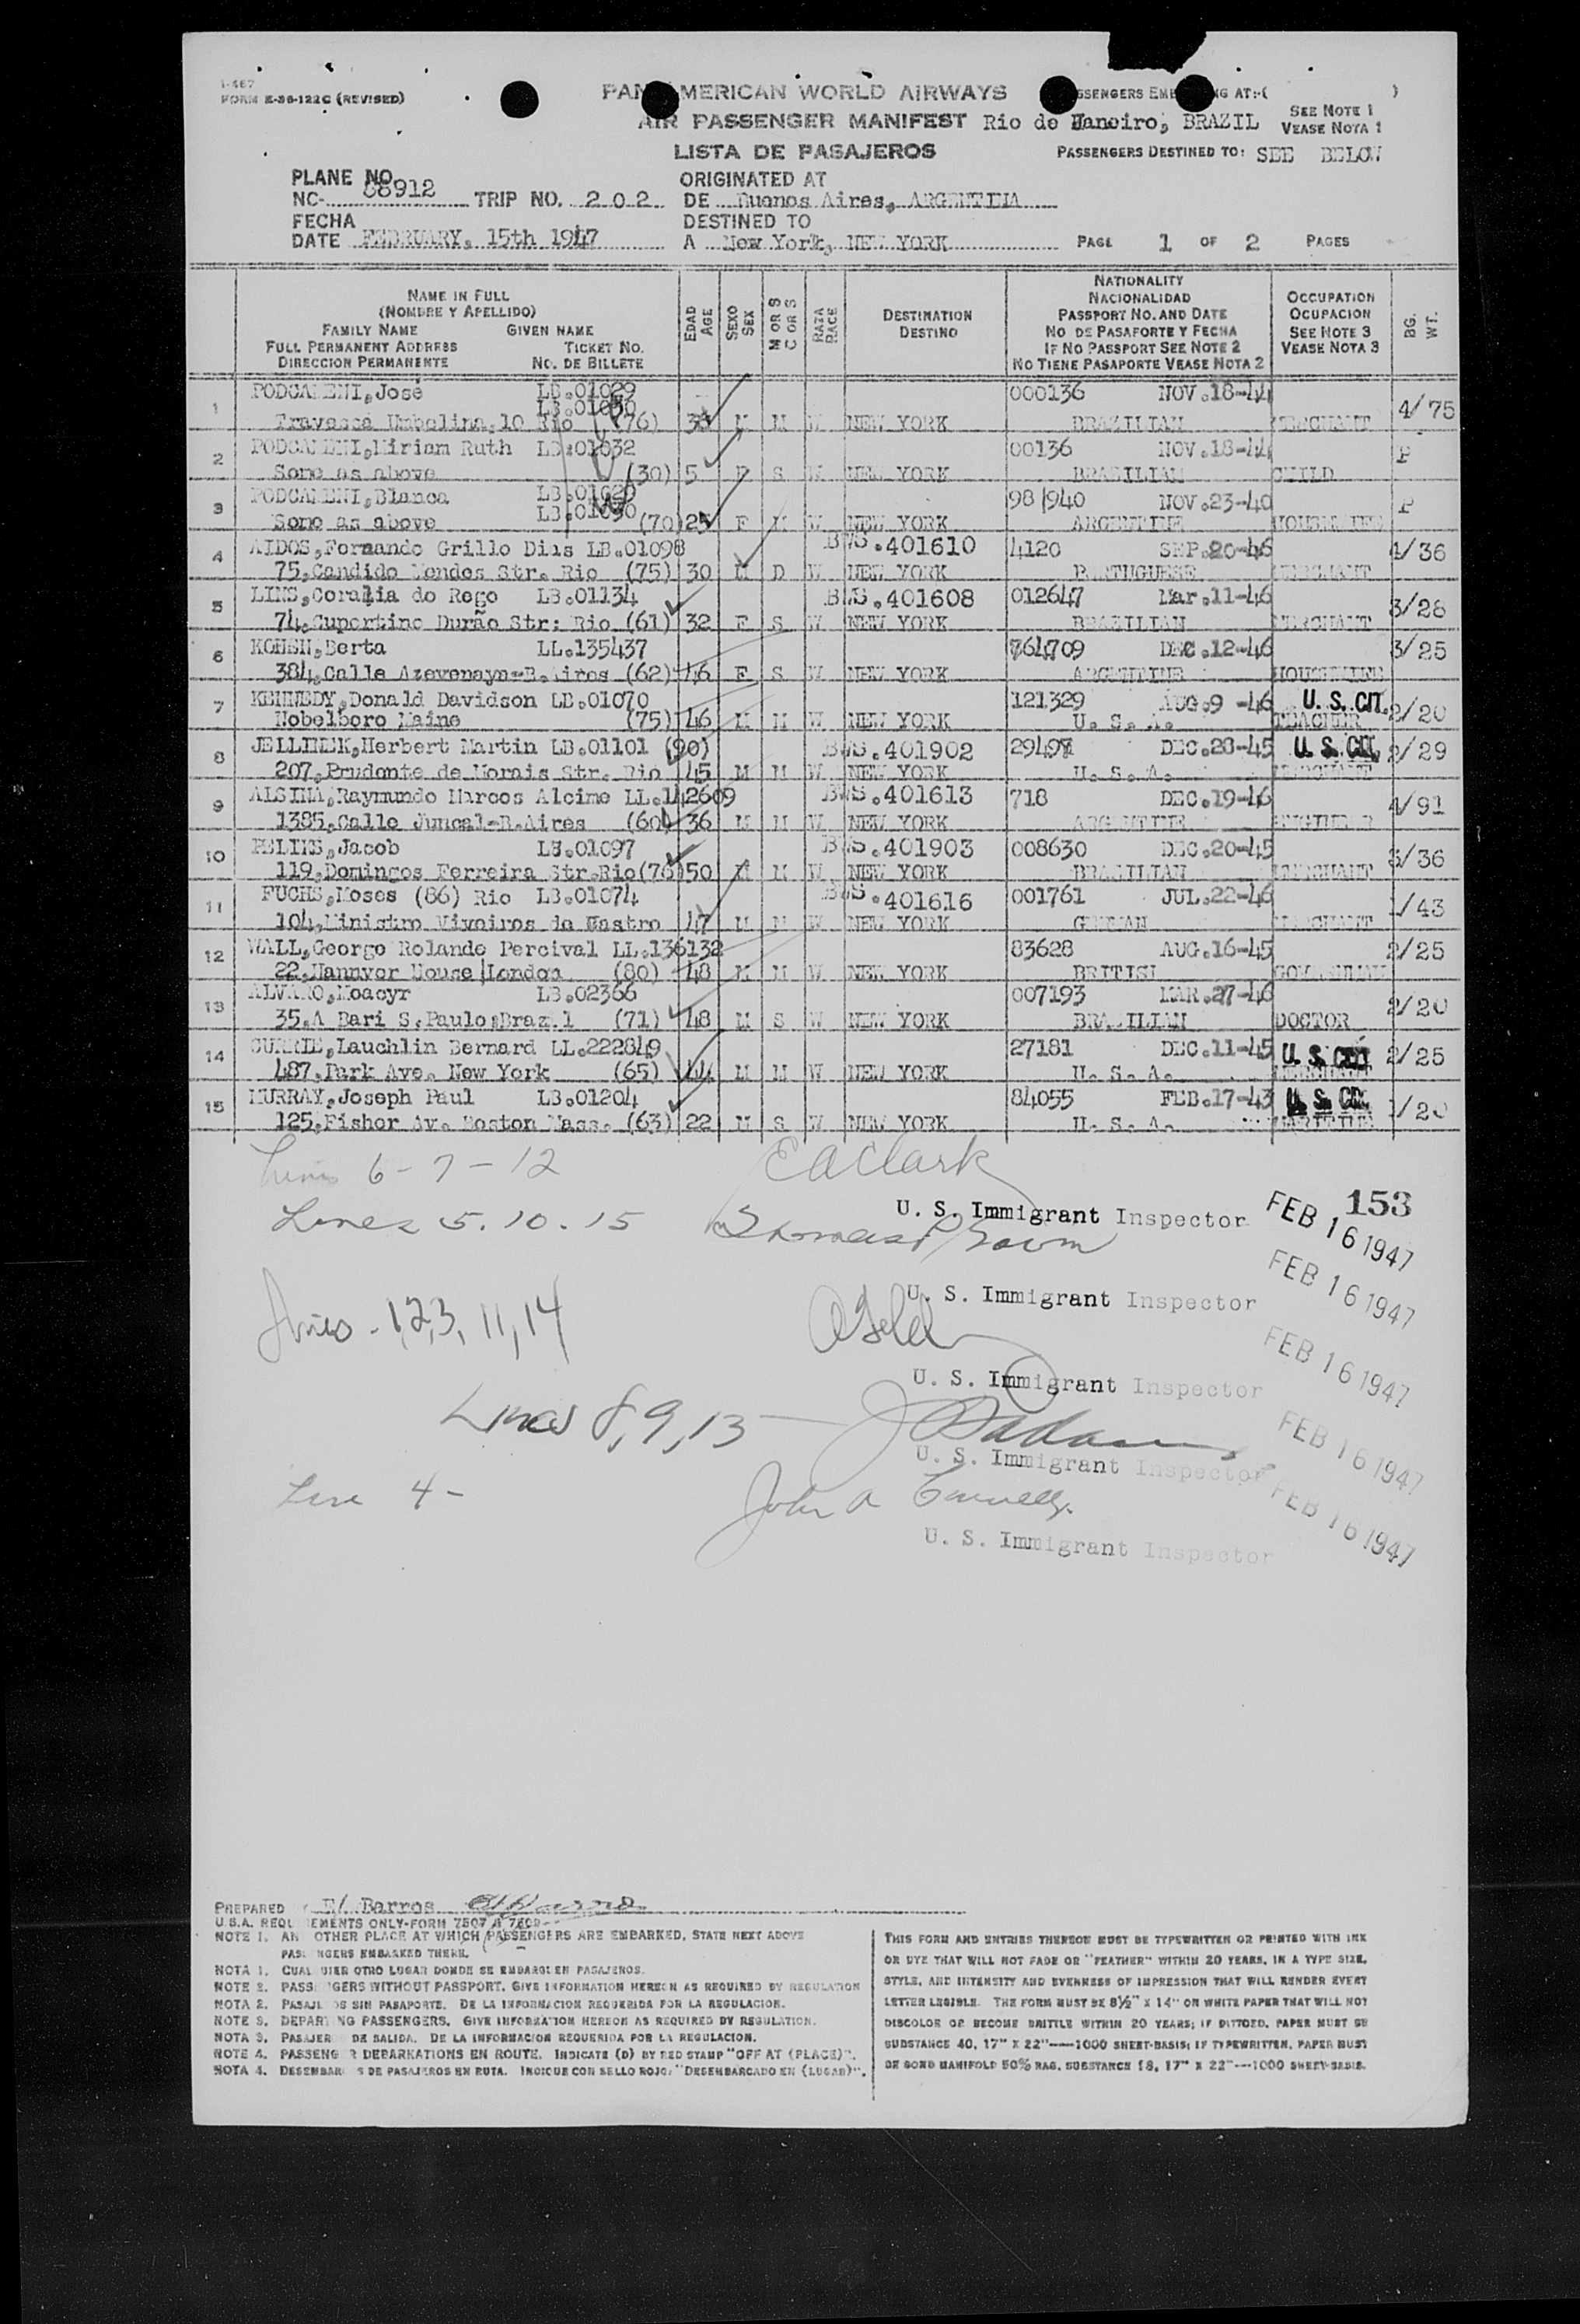 I-467
FORM E-36-122C (REVISED)
PAN AMERICAN WORLD AIRWAYS
AIR PASSENGER MANIFEST
LISTA DE PASAJEROS
AT:-( )
Rio de Janeiro, BRAZIL
SEE NOTE 1
VEASE NOTA 1
PASSENGERS DESTINED TO: SEE BELOW
PLANE NO.
NC- 88912 TRIP NO. 202
FECHA
DATE FEBRUARY, 15th 1947
ORIGINATED AT
DE Buenos Aires, ARGENTINA
DESTINED TO
A New York, NEW YORK
PAGE 1 OF 2 PAGES
NAME IN FULL
(NOMBRE Y APELLIDO)
FAMILY NAME GIVEN NAME
FULL PERMANENT ADDRESS TICKET NO.
DIRECCION PERMANENTE NO. DE BILLETE
EDAD AGE
SEXO SEX
M OR S
C OR S
RAZA RACE
DESTINATION
DESTINO
NATIONALITY
NACIONALIDAD
PASSPORT NO. AND DATE
NO DE PASAPORTE Y FECHA
IF NO PASSPORT SEE NOTE 2
NO TIENE PASAPORTE VEASE NOTA 2
OCCUPATION
OCUPACION
SEE NOTE 3
VEASE NOTA 3
BG. WT.
1 PODCAMENI, José LB.01029 000136 NOV.18-44
LB.01030
Travessa Umbelina, 10 Rio (76) 38 M M W NEW YORK BRAZILIAN MERCHANT 4/75
2 PODCAMENI, Miriam Ruth LB.01032 00136 NOV.18-44 P
Same as above (30) 5 F S W NEW YORK BRAZILIAN CHILD
3 PODCAMENI, Blanca LB.01029 981940 NOV.23-40 P
LB.01030
Same as above (70) 25 F M W NEW YORK ARGENTINE HOUSEWIFE
4 AIDOS, Fernando Grillo Dias LB.01098 BWS.401610 4120 SEP.20-46 4/36
75, Candido Mendes Str. Rio (75) 30 M D W NEW YORK PORTUGUESE MERCHANT
5 LINS, Coralia do Rego LB.01134 BWS.401608 012647 Mar.11-46 3/28
74, Cupertino Durão Str: Rio (61) 32 F S W NEW YORK BRAZILIAN MERCHANT
6 KOHEN, Berta LL.135437 764709 DEC.12-46 3/25
384, Calle Azevenaya-B.Aires (62) 46 F S W NEW YORK ARGENTINE HOUSEWIFE
7 KENNEDY, Donald Davidson LB.01070 121329 AUG.9 -46 U. S. CIT. 2/20
Nobelboro Maine (75) 46 M M W NEW YORK U. S. A. TEACHER
8 JELLINEK, Herbert Martin LB.01101 (90) BWS.401902 29497 DEC.28-45 U. S. CIT. 2/29
207, Prudente de Morais Str. Rio 45 M M W NEW YORK U. S. A. MERCHANT
9 ALSINA, Raymundo Marcos Alcimo LL.142609 BWS.401613 718 DEC.19-46 4/91
1385, Calle Juncal-B.Aires (60) 36 M M W NEW YORK ARGENTINE ENGINEER
10 FELIKS, Jacob LB.01097 BWS.401903 008630 DEC.20-45 3/36
119, Domingos Ferreira Str.Rio (76) 50 M M W NEW YORK BRAZILIAN MERCHANT
11 FUCHS, Moses (86) Rio LB.01074 BWS.401616 001761 JUL.22-46 1/43
104, Ministro Viveiros de Castro 47 M M W NEW YORK GERMAN MERCHANT
12 WALL, George Rolande Percival LL.136132 83628 AUG.16-45 2/25
22, Hannver House London (80) 48 M M W NEW YORK BRITISH
13 ALVARO, Moacyr LB.02366 007193 MAR.27-46 2/20
35, A Bari S.Paulo: Brazil (71) 48 M S W NEW YORK BRAZILIAN DOCTOR
14 CURRIE, Lauchlin Bernard LL.222849 27181 DEC.11-45 U. S. CIT. 2/25
487, Park Ave. New York (65) 44 M M W NEW YORK U. S. A.
15 MURRAY, Joseph Paul LB.01204 84055 FEB.17-43 U. S. CIT. 1/20
125, Fisher Av. Boston Mass. (63) 22 M S W NEW YORK U. S. A. MARITIME
Lines 6 - 7 - 12 EAClark
U. S. Immigrant Inspector FEB 16 1947 153
Lines 5. 10. 15 Brown
U. S. Immigrant Inspector FEB 16 1947
Lines - 1,2,3, 11, 14
U. S. Immigrant Inspector FEB 16 1947
Lines 8, 9, 13 —
U. S. Immigrant Inspector FEB 16 1947
Line 4 - John A
U. S. Immigrant Inspector FEB 16 1947
PREPARED Barros
U.S.A. REQUIREMENTS ONLY-FORM 7507
NOTE 1. ANY OTHER PLACE AT WHICH PASSENGERS ARE EMBARKED, STATE NEXT ABOVE
PASSENGERS EMBARKED THERE.
NOTA 1. CUALQUIER OTRO LUGAR DONDE SE EMBARQUEN PASAJEROS.
NOTE 2. PASSENGERS WITHOUT PASSPORT. GIVE INFORMATION HEREON AS REQUIRED BY REGULATION
NOTA 2. PASAJEROS SIN PASAPORTE. DE LA INFORMACION REQUERIDA POR LA REGULACION.
NOTE 3. DEPARTING PASSENGERS. GIVE INFORMATION HEREON AS REQUIRED BY REGULATION.
NOTA 3. PASAJEROS DE SALIDA. DE LA INFORMACION REQUERIDA POR LA REGULACION.
NOTE 4. PASSENGER DEBARKATIONS EN ROUTE. INDICATE (D) BY RED STAMP "OFF AT (PLACE)".
NOTA 4. DESEMBARQUES DE PASAJEROS EN RUTA. INDIQUE CON SELLO ROJO: "DESEMBARCADO EN (LUGAR)".
THIS FORM AND ENTRIES THEREON MUST BE TYPEWRITTEN OR PRINTED WITH INK
OR DYE THAT WILL NOT FADE OR "FEATHER" WITHIN 20 YEARS, IN A TYPE SIZE,
STYLE, AND INTENSITY AND EVENNESS OF IMPRESSION THAT WILL RENDER EVERY
LETTER LEGIBLE. THE FORM MUST BE 8½" X 14" ON WHITE PAPER THAT WILL NOT
DISCOLOR OR BECOME BRITTLE WITHIN 20 YEARS; IF DITTOED, PAPER MUST BE
SUBSTANCE 40, 17" X 22"----1000 SHEET-BASIS; IF TYPEWRITTEN, PAPER MUST
BE BOND MANIFOLD 50% RAG, SUBSTANCE 18, 17" X 22"---1000 SHEET-BASIS.